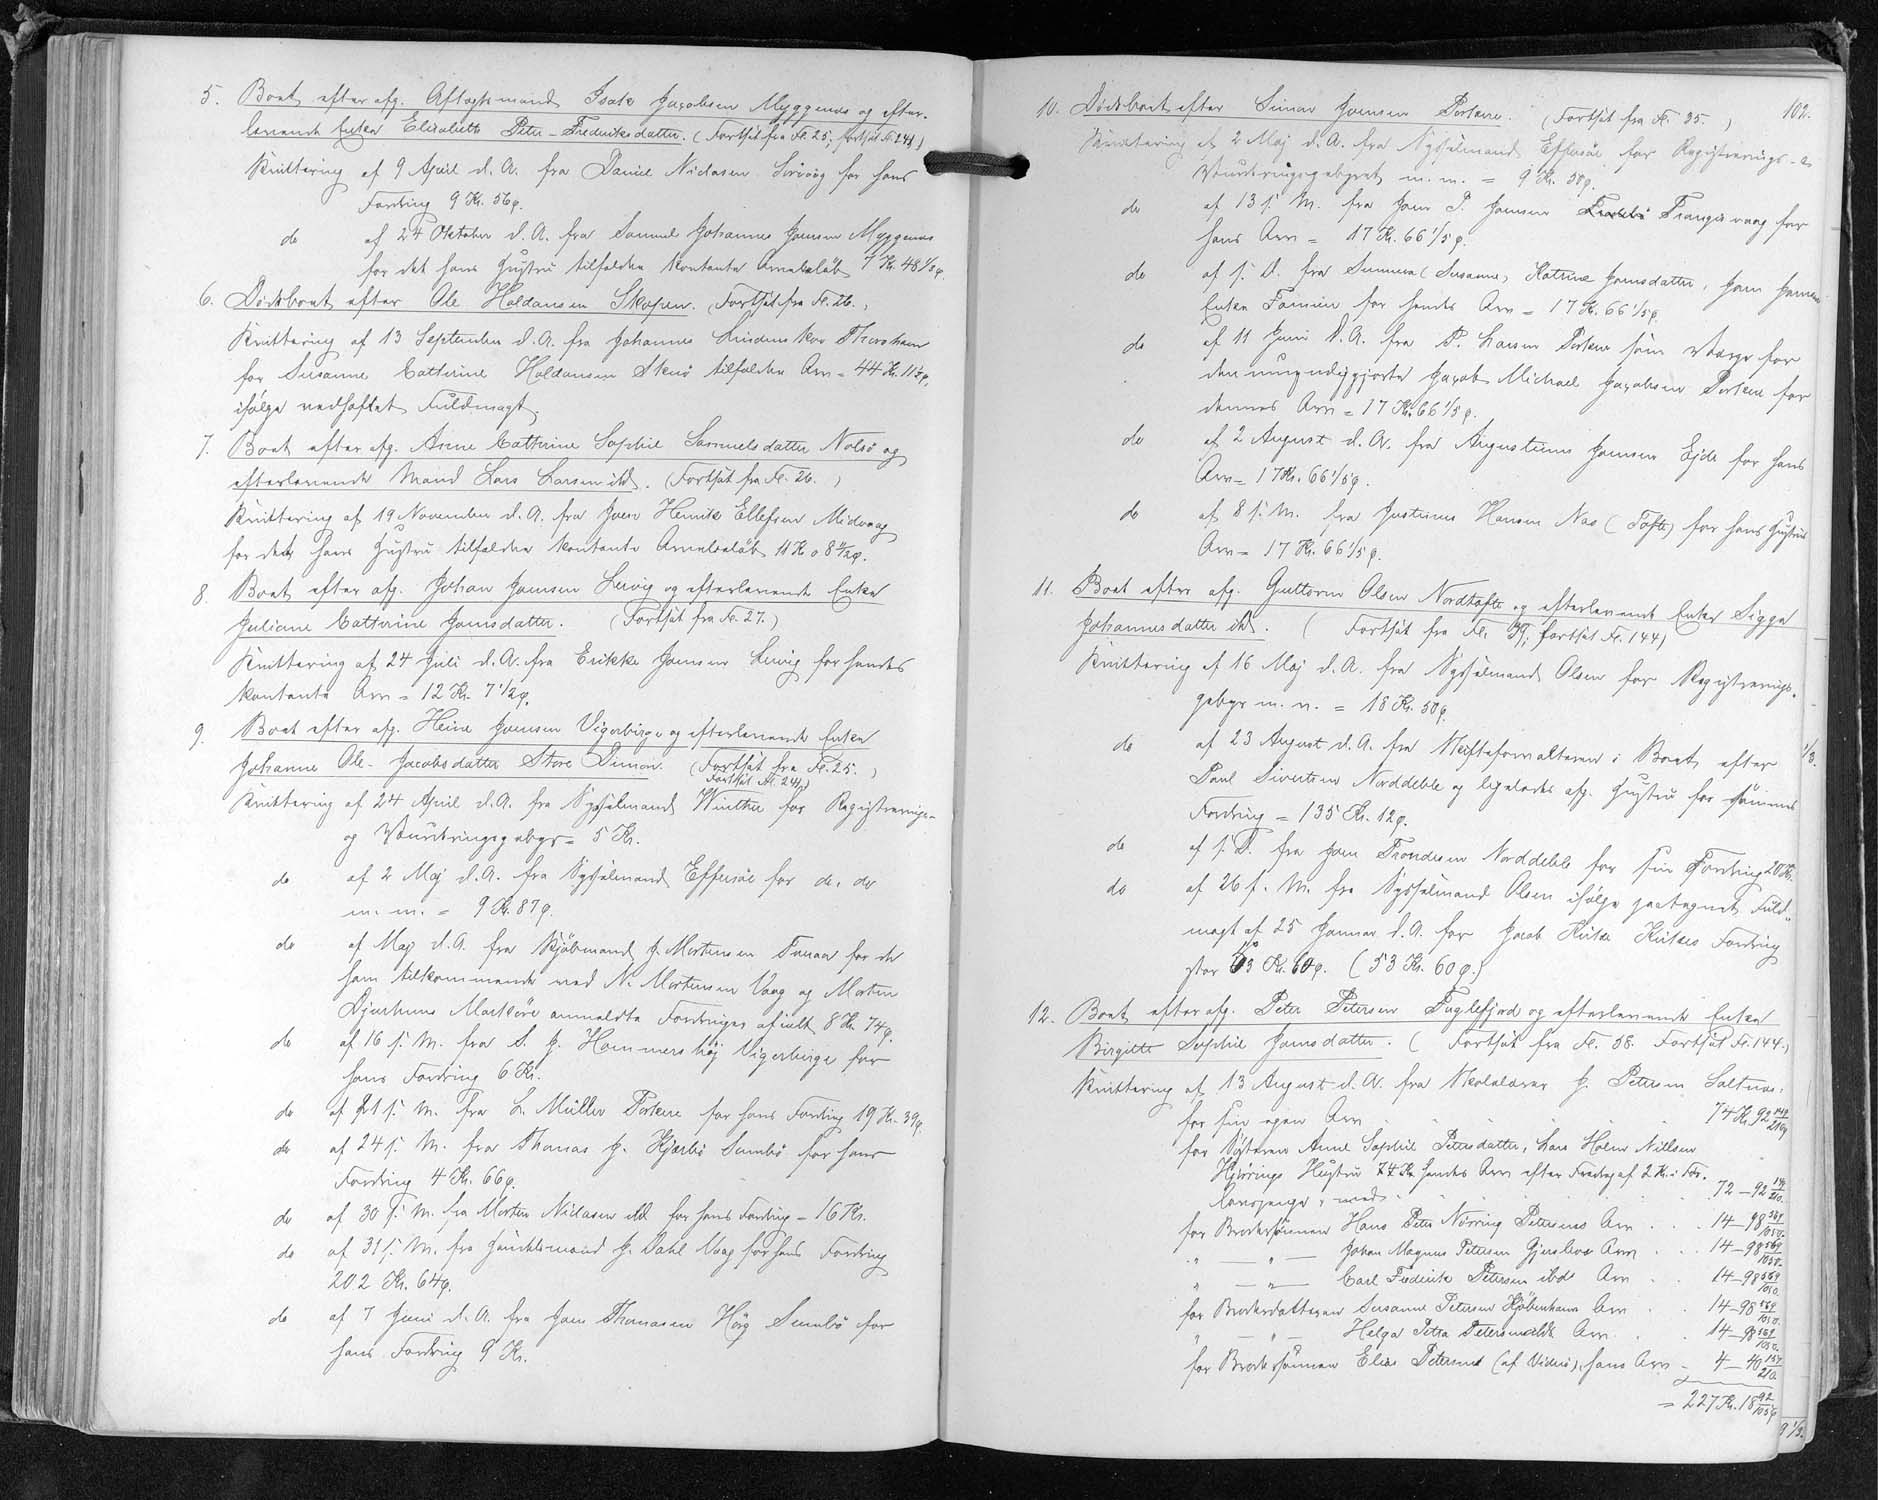 5. Boet efter afg. Aftægtsmand Isak Jacobsen Myggenæs og efter-
levende Enke Elisabeth Peter-Frederiksdatter. (Fortsat fra Fl. 25; fortsat Fl. 241)
Kvittering af 9 April d. A. fra Daniel Niclasen Sørvåg for hans
Fordring 9 Kr. 56 ø.
do af 24 Oktober d. A. fra Samuel Johannes Joensen Myggenæs
for det hans Hustru tilfaldne kontante Arvebeløb 7 Kr. 48 1/3 ø.
6. Dødsboet efter Ole Haldansen Skopen. (Fortsat fra Fl. 26.)
Kvittering af 13 September d. A. fra Johannes Lindenskov Thorshavn
for Susanne Cathrine Haldansen Skuø tilfaldne Arv = 44 Kr. 11 ø,
ifølge vedhæftet Fuldmagt.
7. Boet efter afg. Arine Cathrine Sophie Samuelsdatter Nolsø og
efterlevende Mand Lars Larsen ibd. (Fortsat fra Fl. 26.)
Kvittering af 19 November d. A. fra Joen Henrik Ellefsen Midvaag
for det hans Hustru tilfaldne kontante Arvebeløb 11 Kr. 08 1/2 ø.
8. Boet efter afg. Johan Joensen Lervig og efterlevende Enke
Juliane Cathrine Joensdatter. (Fortsat fra Fl. 27.)
Kvittering af 24 Juli d. A. fra Erikke Joensen Lervig for hendes
kontante Arv = 12 Kr. 7 1/2 ø.
9. Boet efter afg. Heine Joensen Vigerbirge og efterlevende Enke
Johanne Ole-Jacobsdatter Store Dimon. (Fortsat fra Fl. 25.)
Fortsat Fl. 241)
Kvittering af 24 April d. A. fra Sysselmand Winther for Registrerings-
og Vurderingsgebyr = 5 Kr.
do af 2 Maj d. A. fra Sysselmand Effersøe for do, do
m. m. = 9 Kr. 87 ø.
do af Maj d. A. fra Kjøbmand J. Mortensen Tveraa for de
ham tilkommende ved N. Mortensen Vaag og Morten
Djurhuus Markøre anmeldte Fordringer afialt 8 Kr. 74 ø.
do af 16 s. M. fra S. J. Hammershøj Vigerbirge for
hans Fordring 6 Kr.
do af 21 s. M. fra L. Müller Porkere for hans Fordring 19 Kr. 39 ø.
do af 24 s. M. fra Thomas J. Kjærbø Sumbø for hans
Fordring 4 Kr. 66 ø.
do af 30 s. M. fra Morten Niclasen ibd for hans Fordring = 16 Kr.
do af 31 s. M. fra Handelsmand J. Dahl Vaag for hans Fordring
202 Kr. 64 ø.
do af 7 Juni d. A. fra Joen Thomasen Hørg Sumbø for
hans Fordring 9 Kr.
102.
10. Dødsboet efter Simon Joensen Porkere. (Fortsat fra Fl. 35.)
Kvittering af 2 Maj d. A. fra Sysselmand Effersøe for Registrerings- o
Vurderingsgebyret m. m. = 9 Kr. 50 ø.
do af 13 s. M. fra Joen P. Joensen Trangisvaag for
hans Arv = 17 Kr. 66 1/5 ø.
do af s. D. fra Sunneva (Susanne) Katrine Joensdatter, Joen Joensens
Enke Famien for hendes Arv = 17 Kr. 66 1/5 ø.
do af 11 Juni d. A. fra P. Larsen Porkere som Værge for
den umyndiggjorte Jacob Michael Jacobsen Porkere for
dennes Arv = 17 Kr. 66 1/5 ø.
do af 2 August d. A. fra Augustinus Joensen Ejde for hans
Arv = 17 Kr. 66 1/5 ø.
do af 8 s. M. fra Justinus Hansen Næs (Tofte) for hans Hustrus
Arv = 17 Kr. 66 1/5 ø.
11. Boet efter afg. Guttorm Olsen Nordtofte og efterlevende Enke Sigga
Johannesdatter ibd. (Fortsat fra Fl. 39; fortsat Fl. 144)
Kvittering af 16 Maj d. A. fra Sysselmand Olsen for Registrerings-
gebyr m. v. = 18 Kr. 50 ø.
do af 23 August d. A. fra Skifteforvalteren i Boet efter
Poul Sivertsen Norddeble og ligeledes afg. Hustru for sammes
Fordring = 135 Kr. 12 ø.
do af s. D. fra Joen Trondesen Norddeble for sin Fordring 20 Kr.
do af 26 s. M. fra Sysselmand Olsen ifølge paategnet Fuld-
magt af 25 Januar d. A. for Jacob Fordring
stor 53 Kr. 60 ø. (53 Kr. 60 ø.)
12. Boet efter afg. Peter Petersen Fuglefjord og efterlevende Enke
Birgitte Sophie Joensdatter. (Fortsat fra Fl. 58. Fortsat Fl. 144.)
Kvittering af 13 August d. A. fra Skolelærer J. Petersen Saltnæs:
for sin egen Arv 74 Kr. 92 149/210 ø
for Søsteren Anne Sophie Petersdatter, Lars Holm Nielsen
Hjørrings Hustru hendes Arv efter Fradrag af 2 Kr. i For-
med 72 - 92 149/210.
for Brodersønnen Hans Peter Nørring Petersens Arv 14 - 98 569/1050.
" - " - Johan Magnus Petersen Gjerslev Arv 14 - 98 569/1050.
" - " - Carl Frederik Petersen ibd Arv 14 - 98 569/1050.
for Broderdatteren Susanne Petersen Kjøbenhavn Arv 14 - 98 569/1050.
" - " - Helga Petra Petersen ibds Arv 14 - 98 569/1050.
for Brodersønnen Elias Petersen (af Viderø), hans Arv - 4 - 40 157/210.
= 227 Kr. 18 92/1050 ø
1/3.
9 1/3.